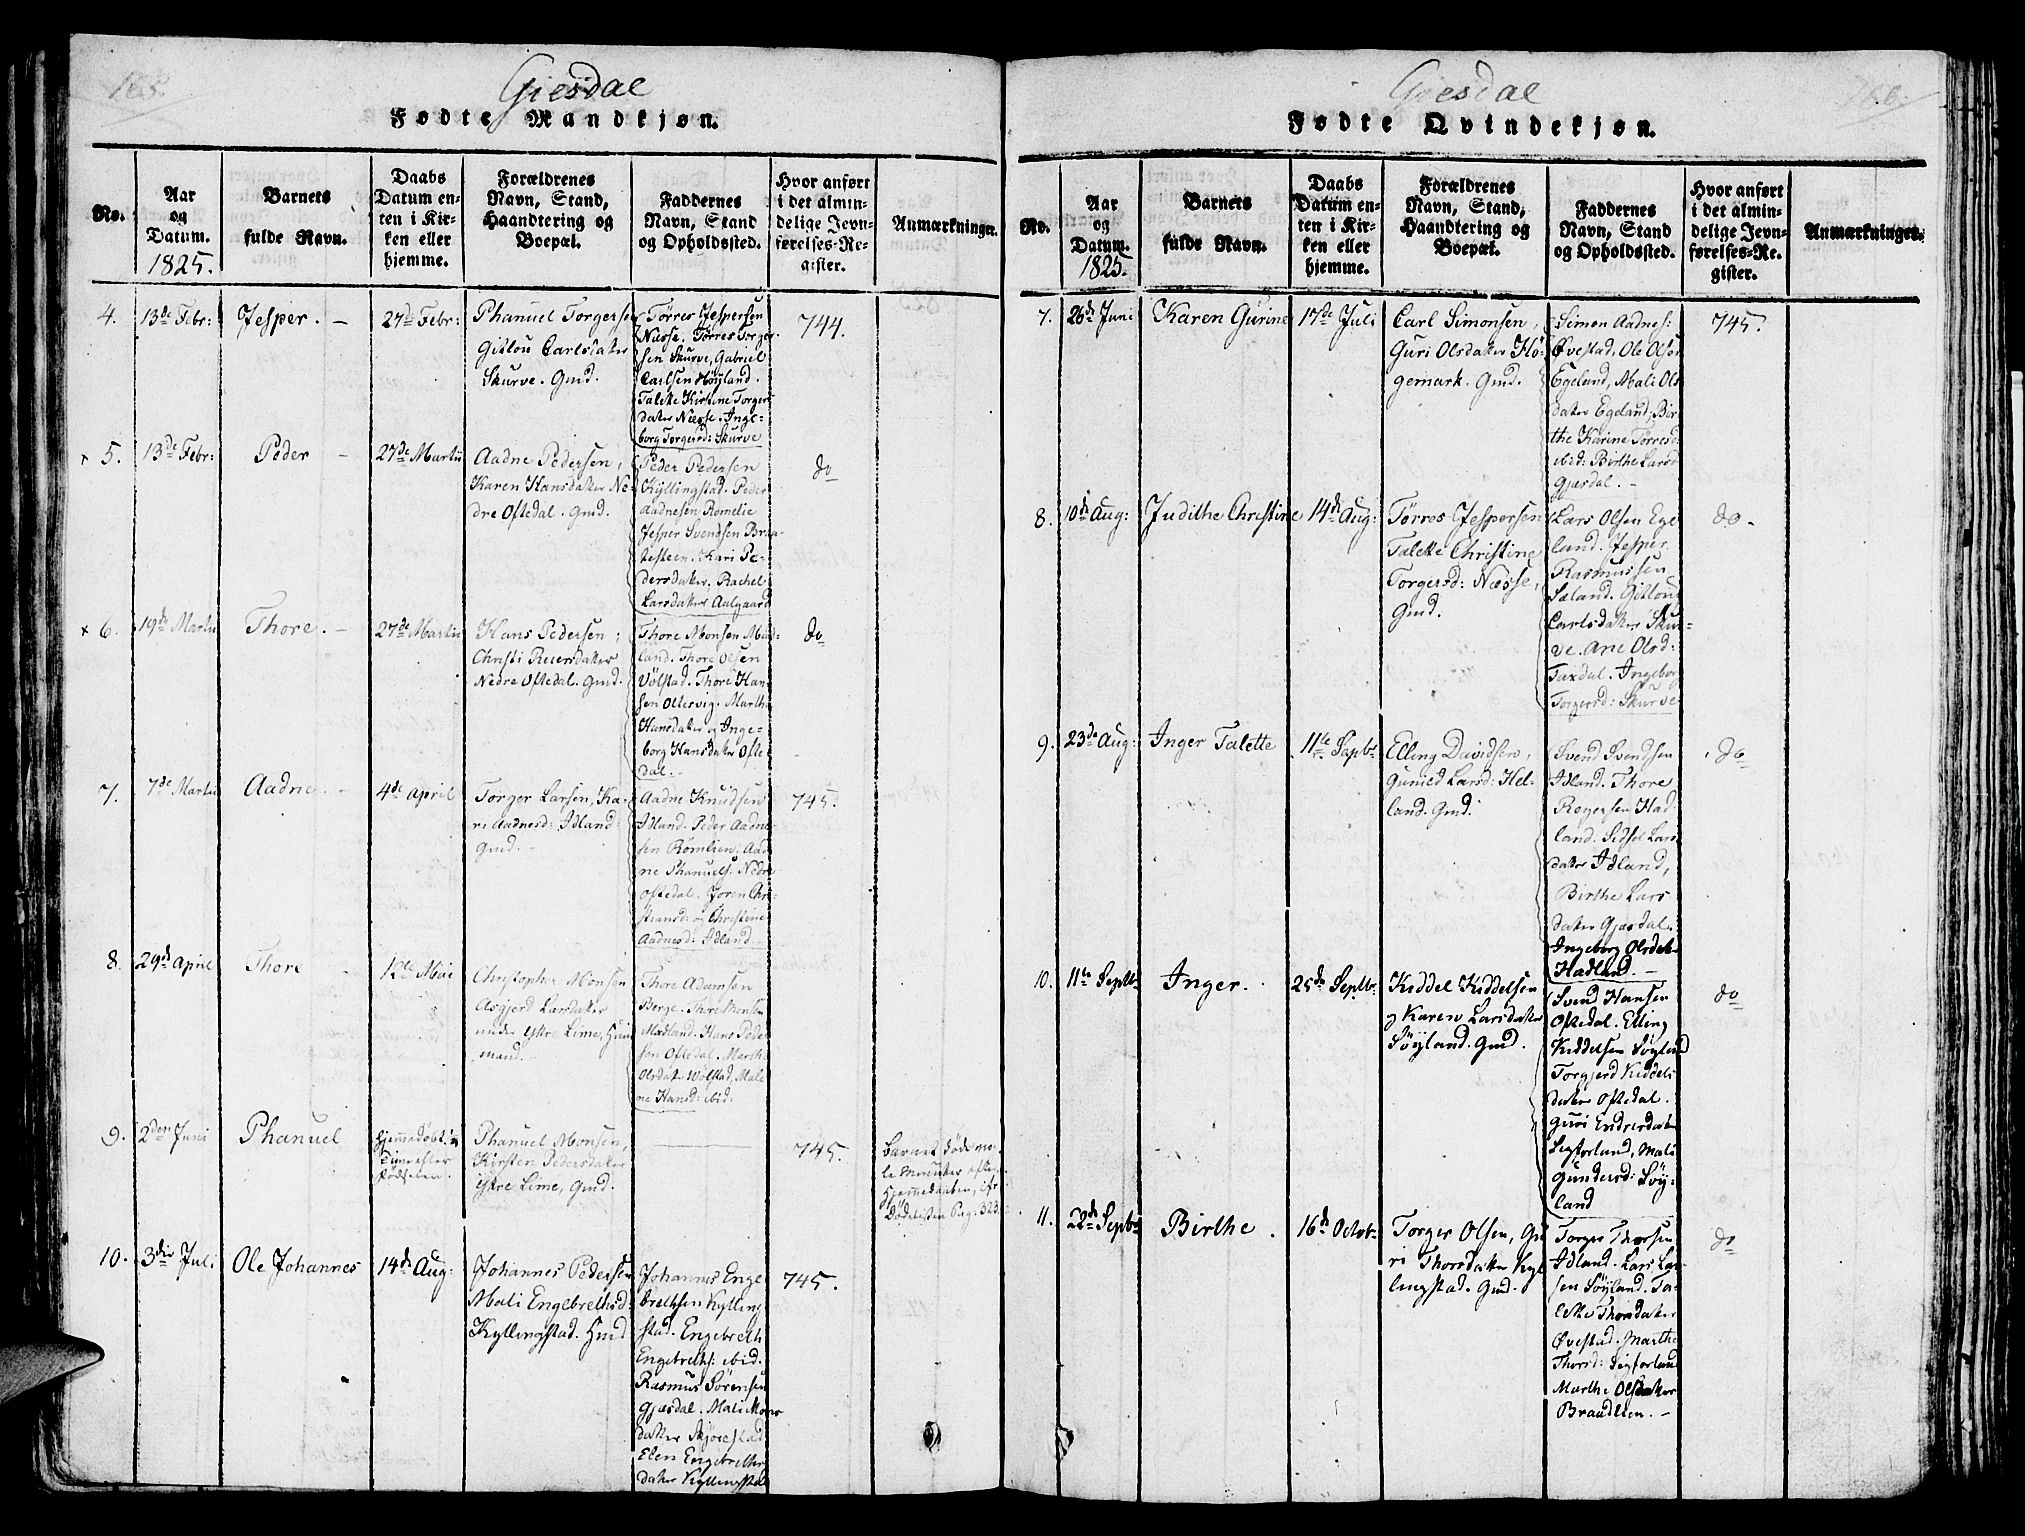 Giesdal
Fødte Mandkjøn.
No.
Aar
og
Datum.
1825.
Barnets
fulde Navn.
Daabs
Datum en-
ten i Kir-
ken eller
hjemme.
Forældrenes
Navn, Stand,
Haandtering og
Boepæl.
Faddernes
Navn, Stand
og Opholdssted.
Hvor anført
i det almin-
delige Jevn-
førelses-Re-
gister.
Anmærkninger.
4.
13de Febr:
Jesper. —
27de Febr:
Phanuel Torgersen
Gitlou Carlsdater
Skurve. Gmd.
Tørres Jespersen
Næsse. Tørres Torger
sen Skurve, Gabriel
Carlsen Høyland.
Talette Kirstine Torgers
dater Næsse. Inge-
borg Torgersd: Skurve
744.
× 5.
13de Febr:
Peder —
27de Martii
Aadne Pedersen,
Karen Hansdater Ne-
dre Oftedal. Gmd.
Peder Pedersen
Kyllingstad. Peder
Aadnesen Romelie
Jesper Svendsen Bra-
testeen. Kari Pe-
dersdater. Rachel
Larsdater Aalgaard
do
× 6.
19de Martii
Thore. —
27de Martii
Hans Pedersen,
Christi Reiersdater
Nedre Oftedal. Gmd.
Thore Monsen Mad-
land. Thore Olsen
Vølstad. Thore Han-
sen Oltesvig. Marthe
Hansdater og Inge-
borg Hansdater Ofte
dal. —
do
7.
7de Martii
Aadne. —
4de April
Torger Larsen, Ka-
ri Aadnesd: Idland:
Gmd. —
Aadne Knudsen
Idland. Peder Aadne-
sen Romlien. Aad
ne Phanuels: Nedre
Oftedal. Joren Chri-
stiansd: og Christine
Aadnesd: Idland —
745.
8.
29de April
Thore —
Mai
Christopher Monsen
Asgjerd Larsdater
under Ystre Lime, Huus
mand. —
Thore Adamsen
Berge. Thore Monsen
Madland. Hans Peder
sen Oftedal. Marthe
Olsdater Wølstad, Male
ne Hansd: ibid:
9.
2den Juni
Phanuel
hjemmedøbt
Time efter
Fødselen.
Phanuel Monsen,
Kirsten Pedersdater
Ystre Lime, Gmd.
745.
Barnet døde no-
le Minutter efter
Hjemmedaaben,
Dødelisten Pag: 323.
10.
3die Juli
Ole Johannes
14de Aug:
Johannes Pedersen
Mali Engebrethsd:
Kyllingstad. Hmd
Johannes Enge
brethsen Kylling
stad. Engebreth
Engebreths: ibid.
Rasmus Sørensen
Gjæsdal. Mali Mons
dater Skjørestad
Elen Engebreths
dater Kyllingstad
745.
Giesdal
Fødte Qvindekjøn.
No.
Aar
og
Datum.
1825.
Barnets
fulde Navn.
Daabs
Datum en-
ten i Kir-
ken eller
hjemme.
Forældrenes
Navn, Stand,
Haandtering og
Boepæl.
Faddernes
Navn, Stand
og Opholdssted.
Hvor anført
i det almin-
delige Jevn-
førelses-Re-
gister.
Anmærkninger.
7.
26de Juni
Karen Gurine
17de Juli
Carl Simonsen,
Guri Olsdater Hø-
gemark. Gmd.
Simon Aadnes:
Øvestad, Ole Olsen
Egeland, Mali Ols
dater Egeland, Bir-
the Karine Tørresd:
ibid: Birthe Larsd
Gjæsdal. —
745.
8.
10de Aug:
Judithe Christine
14de Aug:
Tørres Jespersen
Talette Christine
Torgersd: Næsse,
Gmd.
Lars Olsen Ege
land. Jesper
Rasmussen
Sæland. Gitlou
Carlsdater Skur-
ve. Ane Olsd:
Taxdal. Ingeborg
Torgersd: Skurve
do.
9.
23de Aug:
Inger Talette
11te Septbr
Elling Davidsen,
Gunild Larsd: Hel-
land. Gmd.
Svend Svendsen
Idland. Thore
Rogersen Had
land. Sidsel Lars
dater Idland,
Birthe Lars
dater Gjæsdal.
Ingeborg Olsdater
Hadland. —
do
10.
11te Septbr
Inger.
25de Septbr
Kiddel Kiddelsen
og Karen Larsdater
Søyland. Gmd.
Svend Hansen
Oftedal. Elling
Kiddelsen Søyland
Torgjerd Kiddels
dater Oftedal.
Guri Endresdater
Segforland, Mali
Gundersd: Søy-
land
do
11.
22de Septbr
Birthe.
16de Octobr
Torger Olsen, Gu
ri Thorsdater Kyl
lingstad. Gmd.
Torger Thorsen
Idland. Lars Lar-
sen Søyland. Ta-
lette Thorsdater
Øvestad. Marthe
Thorsd: Segforland
Marthe Olsdater
Brandlien. —
do